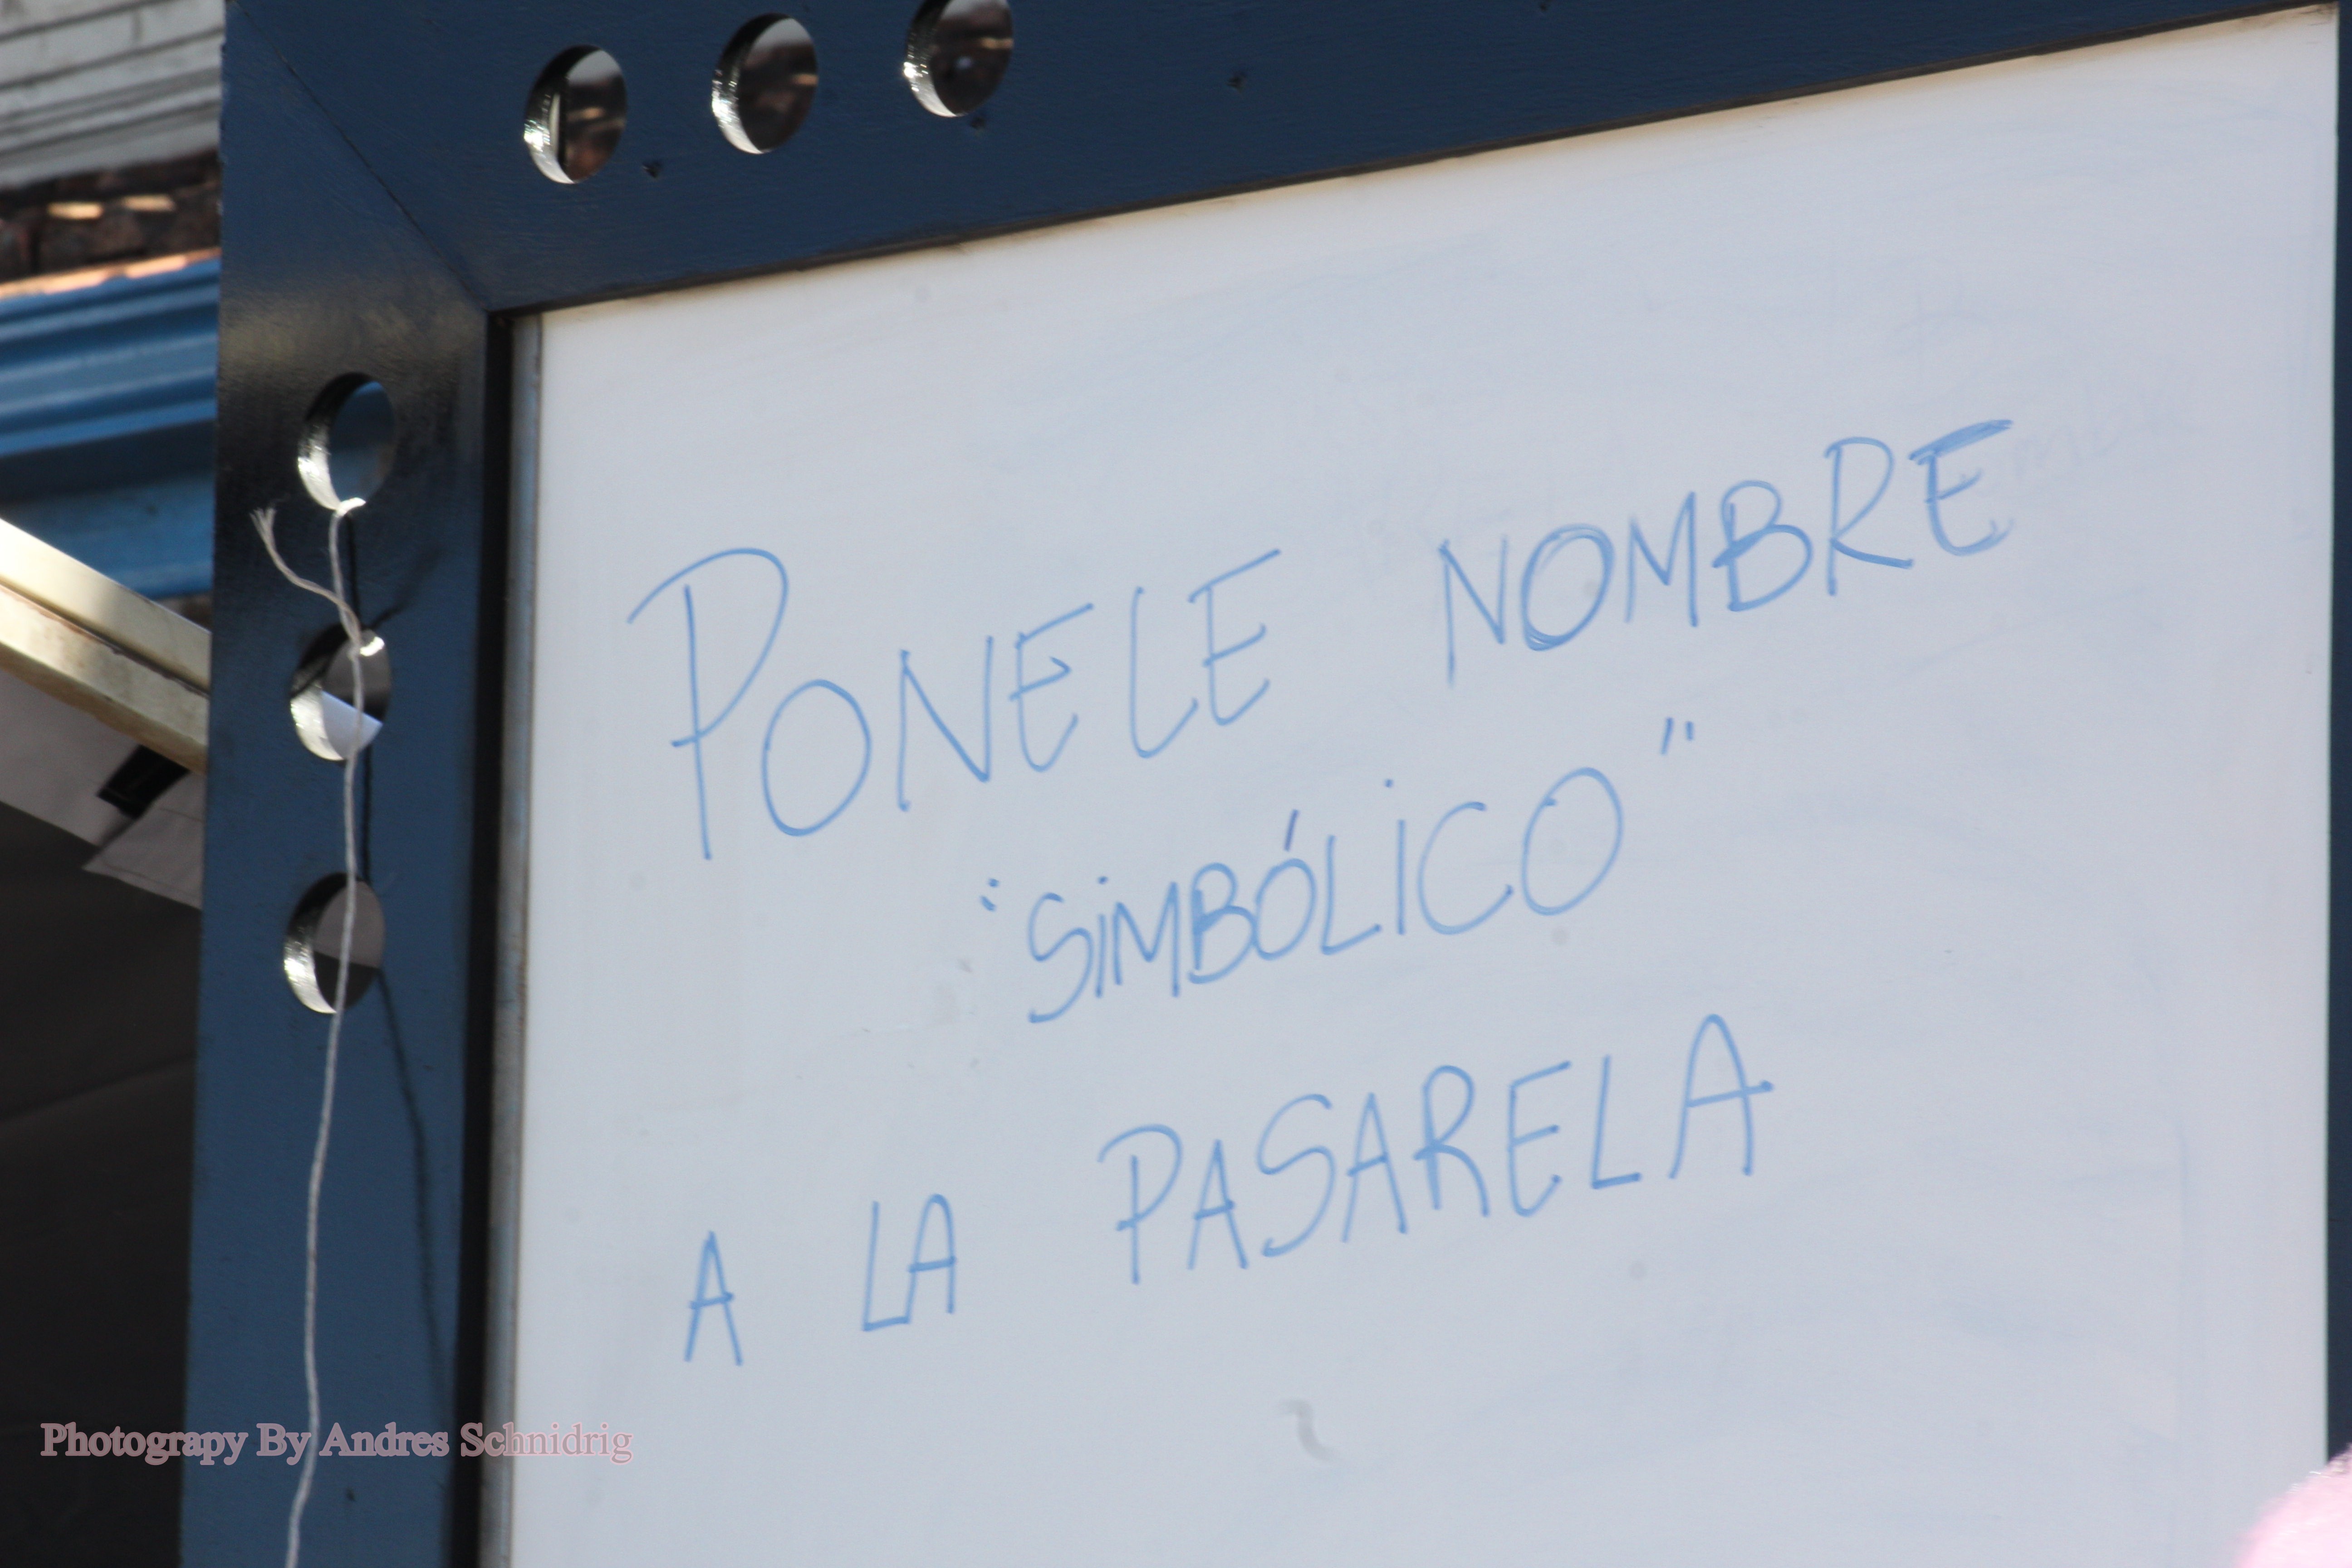 PONELE NOMBRE
"SIMBÓLICO"
A LA PASARELA
Photograpy By Andres Schnidrig